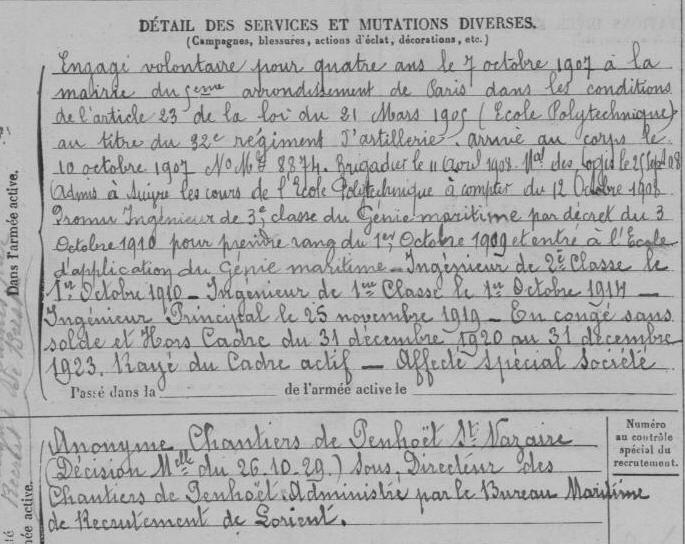 DÉTAIL DES SERVICES ET MUTATIONS DIVERSES.
(Campagnes, blessures, actions d'éclat, décorations, etc.)
Engagé volontaire pour quatre ans le 7 octobre 1907 à la
mairie du 5eme arrondissement de Paris dans les conditions
de l'article 23 de la loi du 21 Mars 1905 (Ecole Polytechnique)
au titre du 32e régiment d'artillerie. arrivé au corps le
10 octobre 1907 No Mle 8874. Brigadier le 11 Avril 1908. Mal des logis le 25 Sept 08
Admis à suivre les cours de l'Ecole Polytechnique à compter du 12 Octobre 1908
Promu Ingénieur de 3e classe du Génie maritime par décret du 3
Octobre 1910 pour prendre rang du 1er Octobre 1909 et entré à l'Ecole
d'application du Génie maritime – Ingénieur de 2e Classe le
1er Octobre 1910 – Ingénieur de 1ere Classe le 1er Octobre 1914 –
Ingénieur Principal le 25 novembre 1919 – En congé sans
solde et Hors Cadre du 31 décembre 1920 au 31 décembre
1923. Rayé du Cadre actif – Affecté spécial Société
Passé dans la de l'armée active le
Anonyme Chantiers de Penhoët St Nazaire
(Décision Melle du 26.10.29.) Sous. Directeur des
Chantiers de Penhoët. Administré par le Bureau Maritime
de Recrutement de Lorient.
Numéro
au contrôle
spécial du
recrutement.
Dans l'armée active.
ée active.